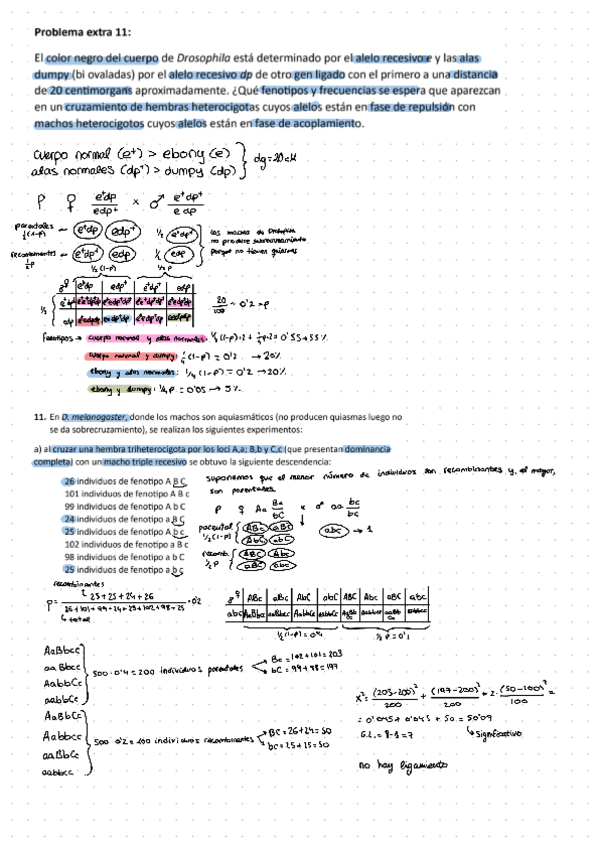 Problema extra 11:
El color negro del cuerpo de Drosophila está determinado por el alelo recesivo e y las alas
dumpy (bi ovaladas) por el alelo recesivo dp de otro gen ligado con el primero a una distancia
de 20 centimorgans aproximadamente. ¿Qué fenotipos y frecuencias se espera que aparezcan
en un cruzamiento de hembras heterocigotas cuyos alelos están en fase de repulsión con
machos heterocigotos cuyos alelos están en fase de acoplamiento.
cuerpo normal (e+) > ebony (e)
alas normales (dp+) > dumpy (dp)
dg = 20 cM
P ♀ e+dp / edp+ x ♂ e+dp+ / e dp
parentales 1/2 (1-p)
e+dp edp+ 1/2 e+dp+
los machos de Drosophila
no produce sobrecruzamiento
porque no tienen quiasmas
recombinantes 1/2 p
e+dp+ edp 1/2 edp
1/2 (1-p) 1/2 p
e+dp edp+ e+dp+ edp
20/100 = 0'2 = p
Fenotipos → cuerpo normal y alas normales:
cuerpo normal y dumpy: 1/4 (1-p) = 0'2 → 20%
ebony y alas normales: 1/4 (1-p) = 0'2 → 20%
ebony y dumpy: 1/4 p = 0'05 → 5%
11. En D. melanogaster, donde los machos son aquiasmáticos (no producen quiasmas luego no
se da sobrecruzamiento), se realizan los siguientes experimentos:
a) al cruzar una hembra triheterocigota por los loci A,a; B,b y C,c (que presentan dominancia
completa) con un macho triple recesivo se obtuvo la siguiente descendencia:
26 individuos de fenotipo A B C
101 individuos de fenotipo A B c
99 individuos de fenotipo A b C
24 individuos de fenotipo a B C
25 individuos de fenotipo A b c
102 individuos de fenotipo a B c
98 individuos de fenotipo a b C
25 individuos de fenotipo a b c
suponemos que el menor número de individuos son recombinantes y, el mayor,
son parentales.
P ♀ Aa Bc / bC x ♂ aa bc / bc
parental 1/2 (1-p) ABc aBc AbC abC abc → 1
recomb. 1/2 p ABC Abc
recombinantes
p = 25 + 25 + 24 + 26 / 26 + 101 + 99 + 24 + 25 + 102 + 98 + 25 = 0'2
total
ABc aBc AbC abC ABC Abc aBC abc
abc
1/2 (1-p) = 0'4 1/2 p = 0'1
AaBbcc
aa Bbcc
AabbCc
aabbCc
500 · 0'4 = 200 individuos parentales
Bc = 102 + 101 = 203
bC = 99 + 98 = 197
AaBbCc
Aabbcc
aaBbCc
aabbcc
500 · 0'2 = 100 individuos recombinantes
BC = 26 + 24 = 50
bc = 25 + 25 = 50
x² = (203-200)² / 200 + (197-200)² / 200 + 2 · (50-100)² / 100 =
= 0'045 + 0'045 + 50 = 50'09
G.L. = 8-1 = 7 Significativo
no hay ligamiento